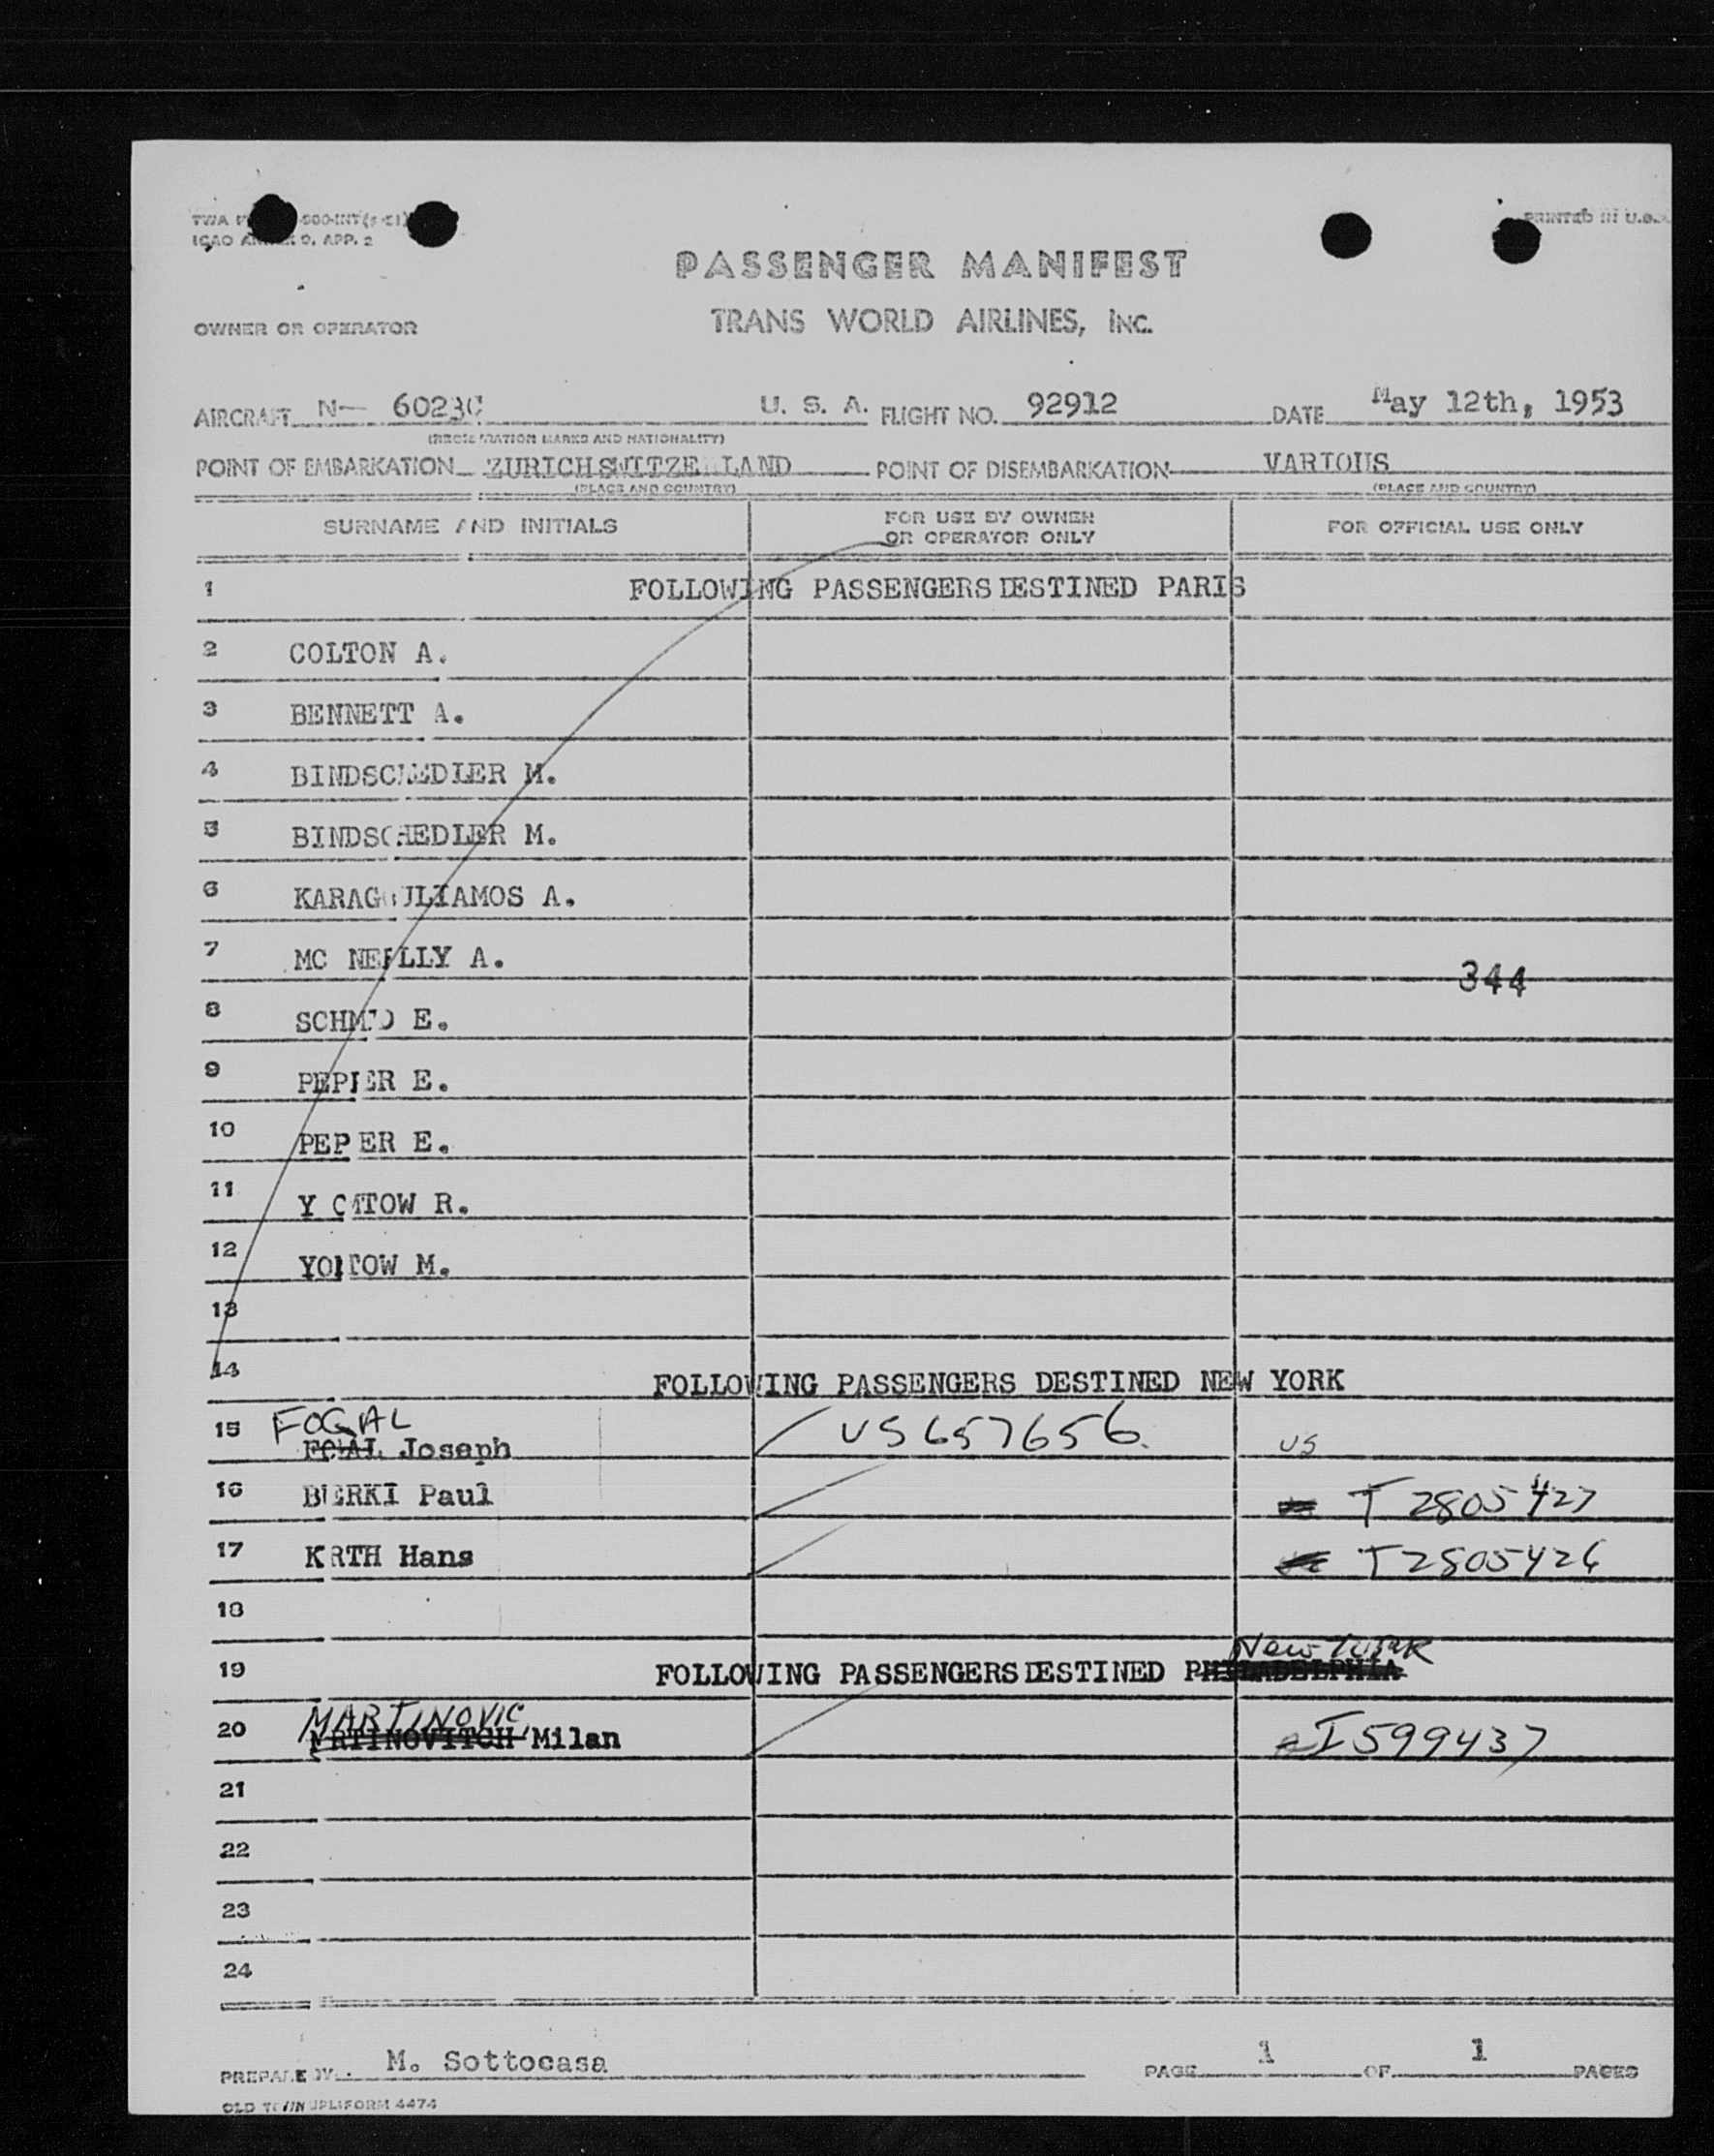 PRINTED IN U.S.
APP. 2
PASSENGER MANIFEST
OWNER OR OPERATOR
TRANS WORLD AIRLINES, INC.
AIRCRAFT N- 6023C U. S. A. FLIGHT NO. 92912 DATE May 12th, 1953
(REGISTRATION MARKS AND NATIONALITY)
POINT OF EMBARKATION ZURICH SWITZERLAND POINT OF DISEMBARKATION VARIOUS
(PLACE AND COUNTRY) (PLACE AND COUNTRY)
SURNAME AND INITIALS FOR USE BY OWNER OR OPERATOR ONLY FOR OFFICIAL USE ONLY
1 FOLLOWING PASSENGERS DESTINED PARIS
2 COLTON A.
3 BENNETT A.
4 BINDSCHEDLER M.
5 BINDSCHEDLER M.
6 KARAGOULIAMOS A.
7 MC NEILLY A.
344
8 SCHMID E.
9 PEPIER E.
10 PEPIER E.
11 R.
12 M.
13
14 FOLLOWING PASSENGERS DESTINED NEW YORK
15 FOGAL Joseph US 657656 US
16 BUERKI Paul T 2805427
17 Hans T2805426
18
New York
19 FOLLOWING PASSENGERS DESTINED PHILADELPHIA
MARTINOVIC
20 MRTINOVITCH Milan I 599437
21
22
23
24
PREPARED BY M. Sottocasa PAGE 1 OF 1 PAGES
4474